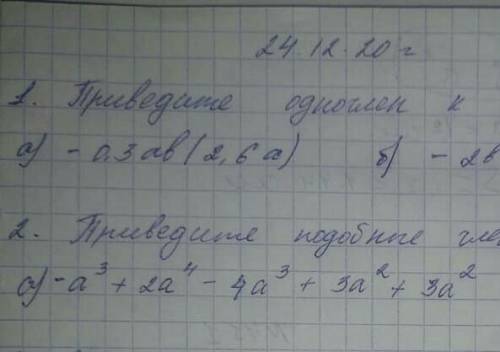 24.12.20 г
1. Приведите одночлен к
а) - 0.3 ав (2,6 а) б) - 2в
2. Приведите подобные чле
а) -а³ + 2а⁴ - 4а³ + 3а² + 3а²